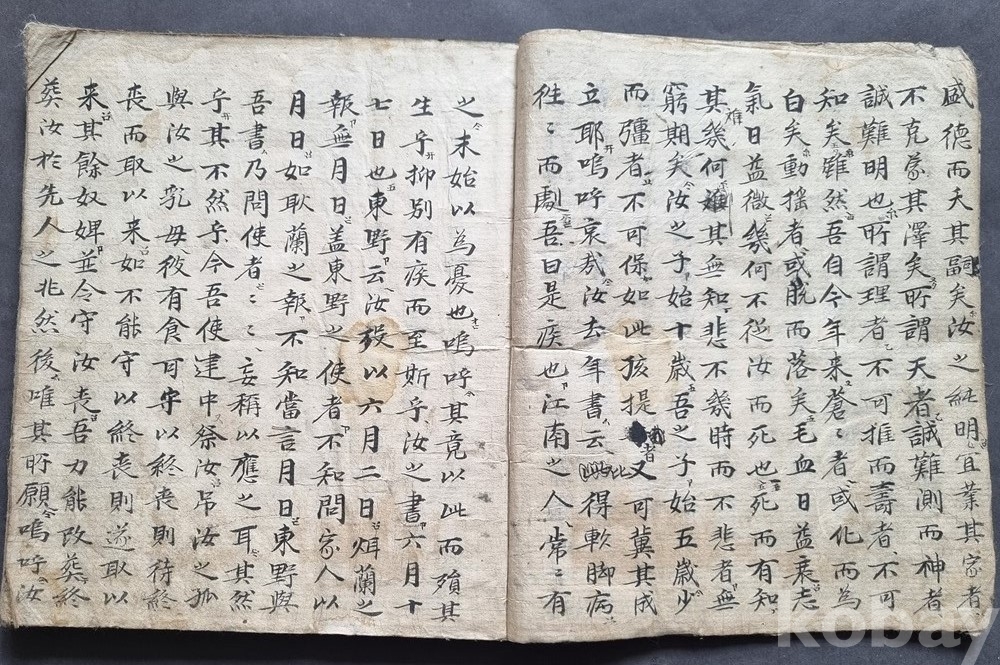 盛德而夭其嗣矣汝之純明宜業其家者
不克蒙其澤矣所謂天者誠難測而神者
誠難明也所謂理者不可推而壽者不可
知矣雖然吾自今年来蒼〻者或化而為
白矣動搖者或脫而落矣毛血日益衰志
氣日益微幾何不從汝而死也死而有知
其幾何離其無知悲不幾時而不悲者無
窮期矣汝之子始十歲吾之子始五歲少
而彊者不可保如此孩提者又可冀其成
立耶嗚呼哀哉汝去年書云比得軟脚病
徃〻而劇吾曰是疾也江南之人常〻有
之未始以為憂也嗚呼其竟以此而殞其
生乎抑別有疾而至斯乎汝之書六月十
七日也東野云汝歿以六月二日耿蘭之
報無月日盖東野之使者不知問家人以
月日如耿蘭之報不知當言月日東野與
吾書乃問使者〻〻妄稱以應之耳其然
乎其不然乎今吾使建中祭汝吊汝之孤
與汝之乳母彼有食可守以終喪則待終
喪而取以来如不能守以終喪則遂取以
来其餘奴婢並令守汝喪吾力能改葬終
葬汝於先人之兆然後唯其所願嗚呼汝
kobay